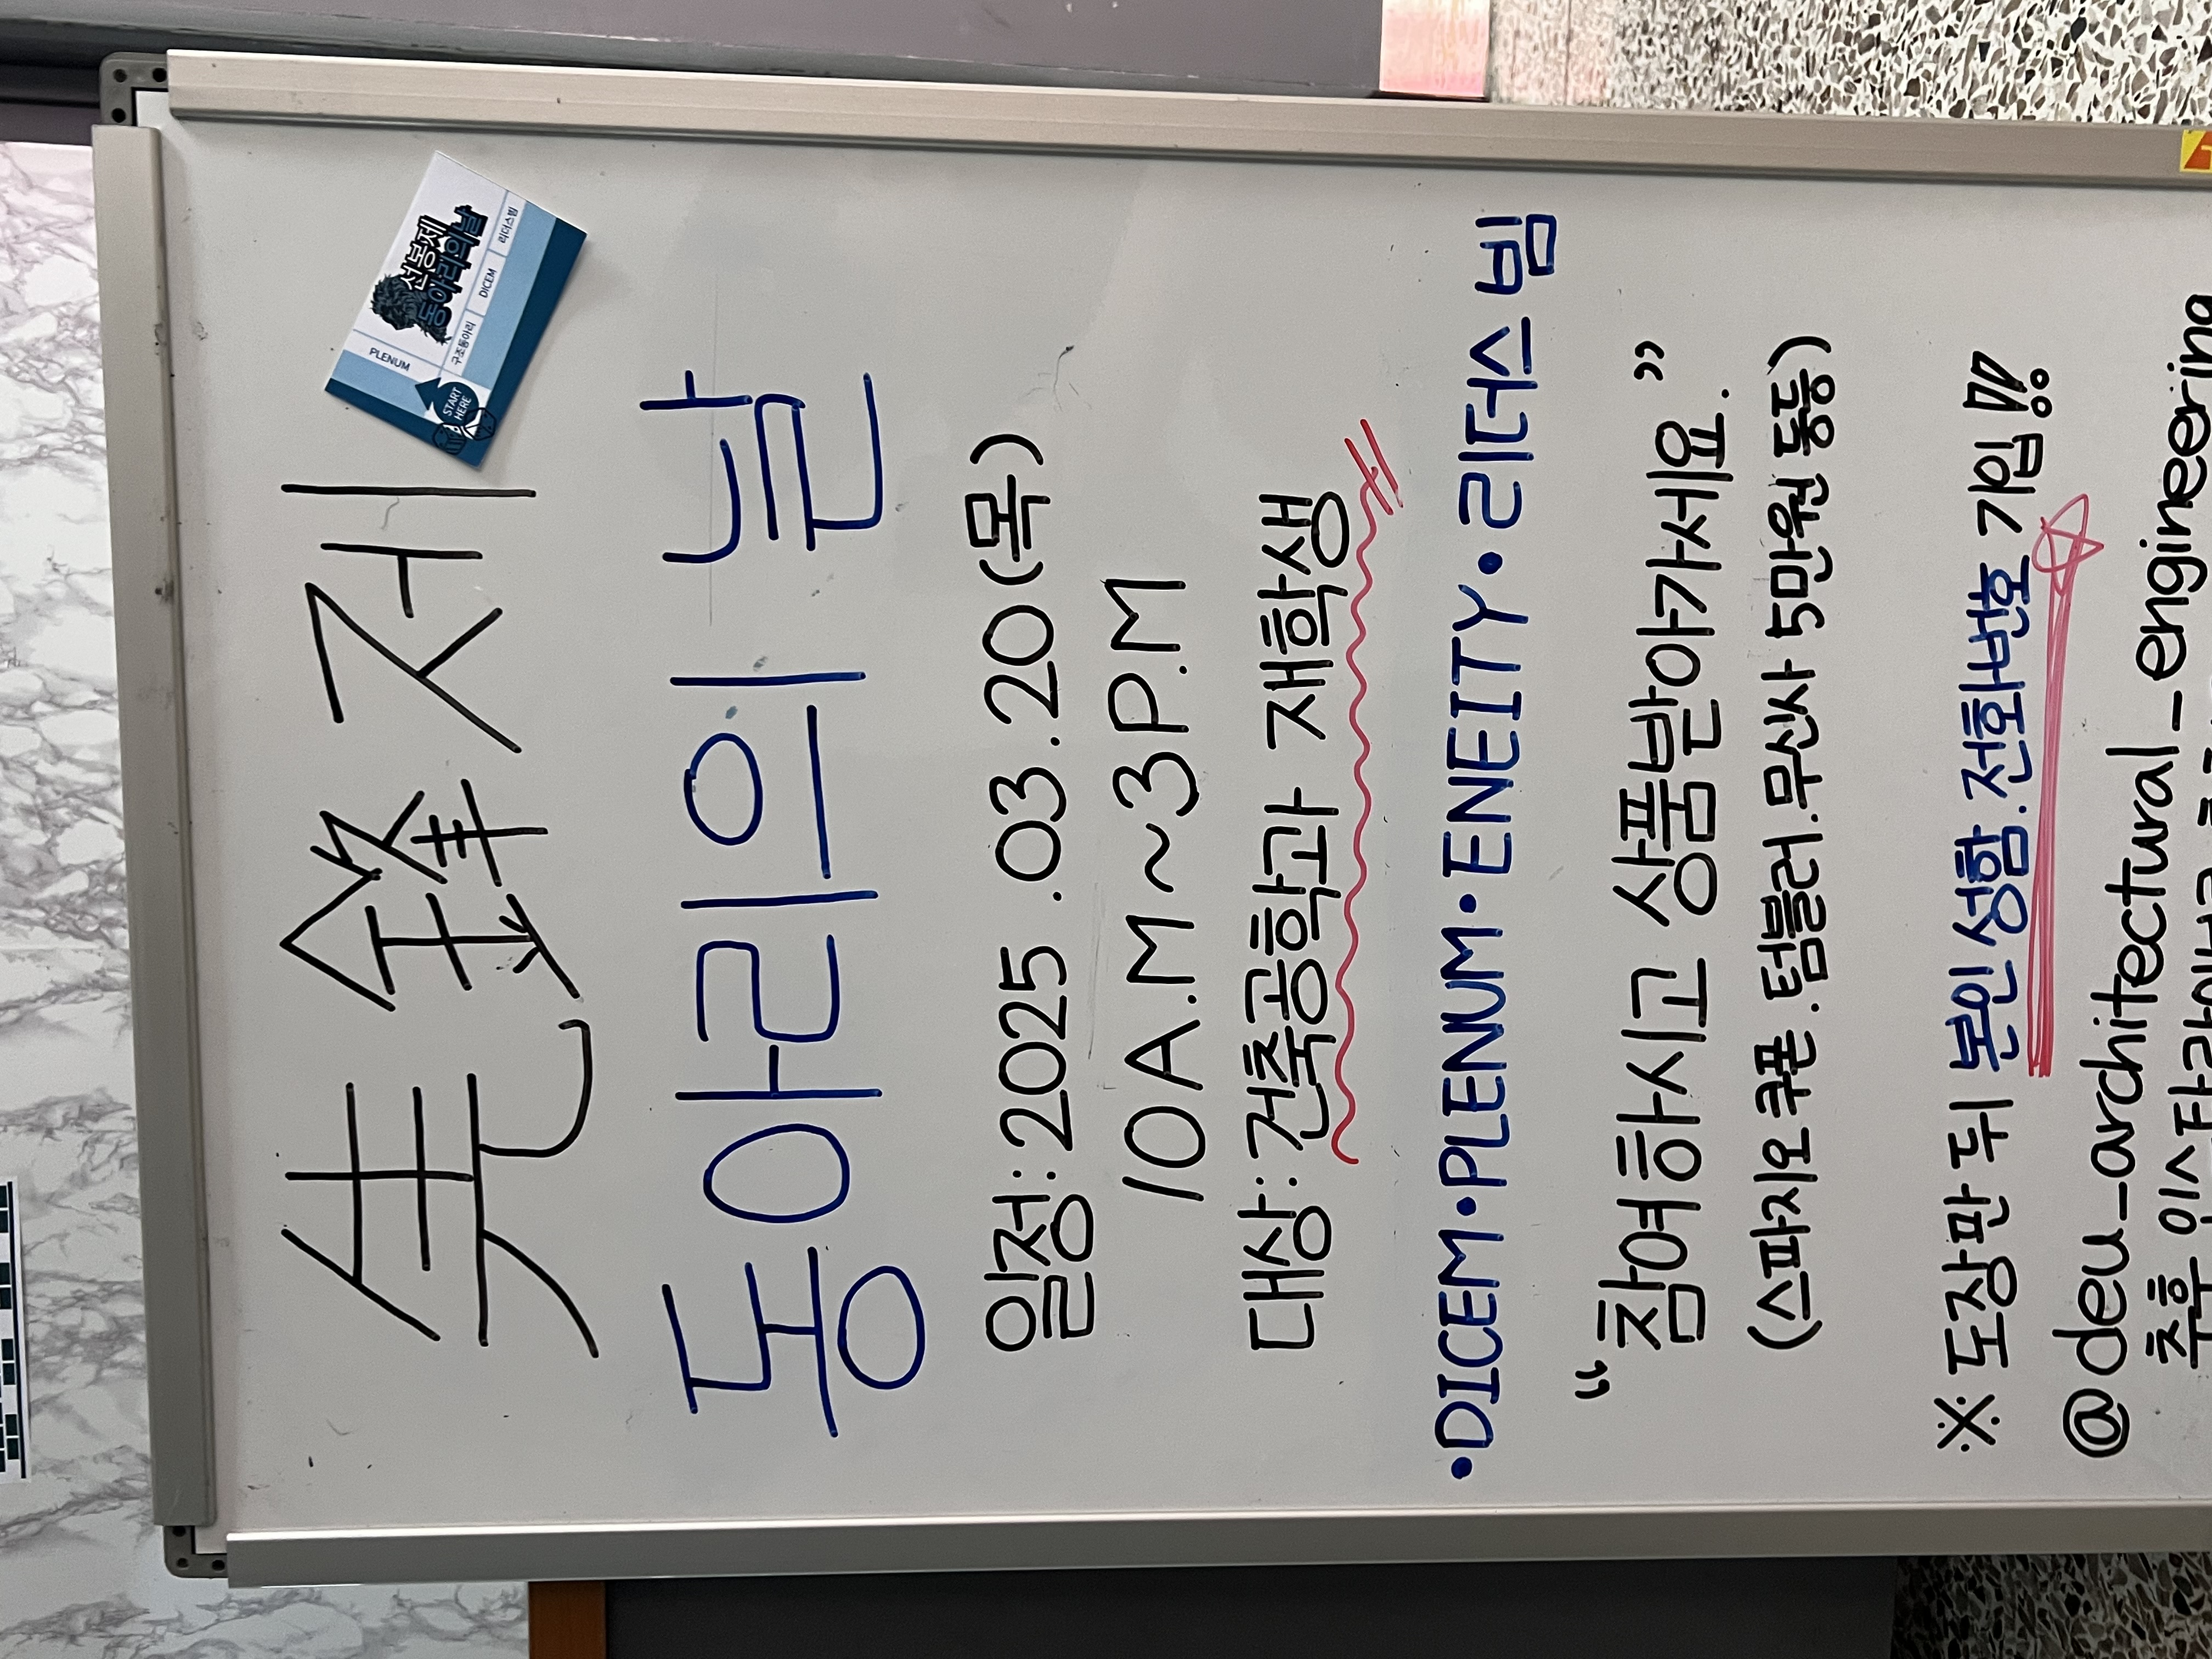 先鋒제
동아리의 날
선봉제
동아리의날
PLENUM
구조동아리
DICEM
리더스빔
START
HERE
일정: 2025.03.20(목)
10A.M~3P.M
대상: 건축공학과 재학생
•DICEM•PLENUM•ENEITY•리더스빔
“참여하시고 상품받아가세요.”
(스파지오 쿠폰.텀블러.무신사 5만원 등등)
※ 도장판 뒤 본인 성함.전화번호 기입!!
@deu_architectural_engineering
추후